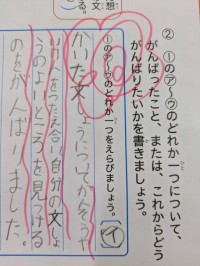 想
文
る。
② ①のア～ウのどれか一つについて、
がんばったこと、または、これからどう
がんばりたいかを書きましょう。
①のア～ウのどれか一つをえらびましょう。
イ
かいた文しょうについてかんそうや
いけんをつたえ合い自分の文しょ
うのよいところを見つける
のをがんばりました。